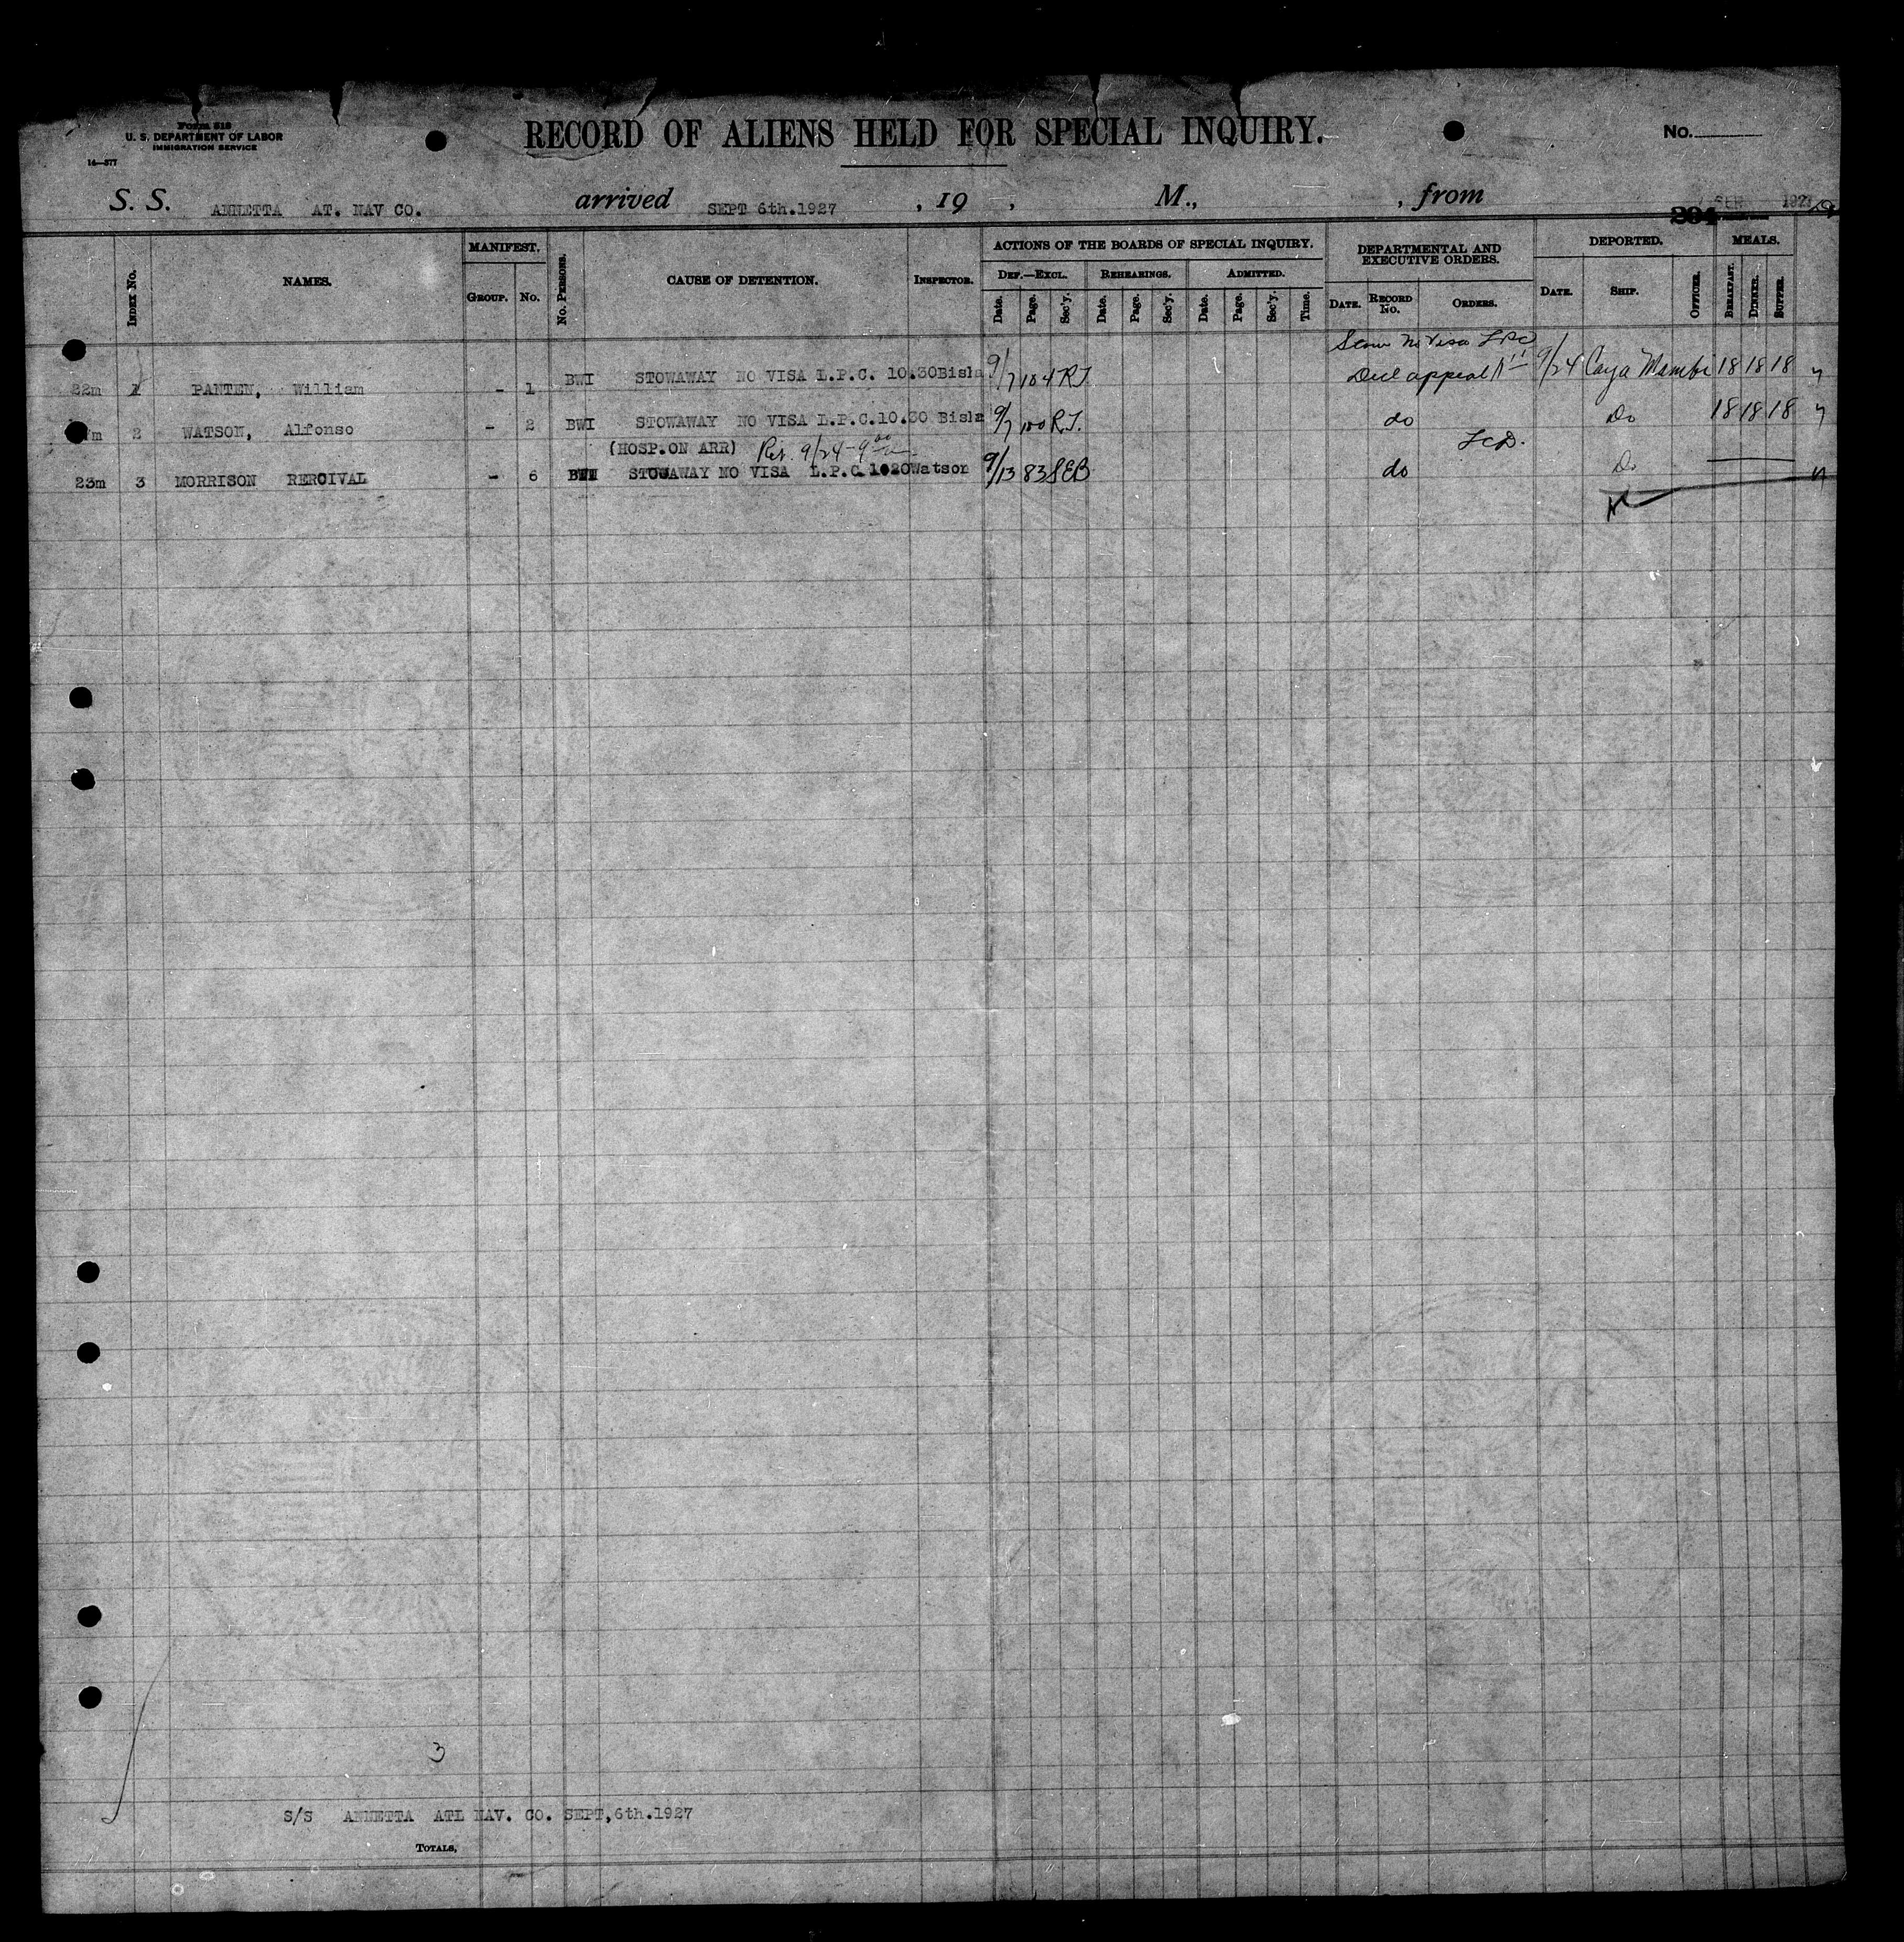 Form 518
U. S. DEPARTMENT OF LABOR
IMMIGRATION SERVICE
14—377
RECORD OF ALIENS HELD FOR SPECIAL INQUIRY.
No.
S. S. ANNETTA AT. NAV CO. arrived SEPT 6th.1927 , 19 , M., , from
204 1927
INDEX No. NAMES. MANIFEST. GROUP. No. No. PERSONS. CAUSE OF DETENTION. INSPECTOR.
ACTIONS OF THE BOARDS OF SPECIAL INQUIRY.
DEF.—EXCL. REHEARINGS. ADMITTED.
Date. Page. Sec'y. Date. Page. Sec'y. Date. Page. Sec'y. Time.
DEPARTMENTAL AND EXECUTIVE ORDERS.
DATE. RECORD No. ORDERS.
DEPORTED.
DATE. SHIP. OFFICER.
MEALS.
BREAKFAST. DINNER. SUPPER.
Stow No Visa LPC
22m 1 PANTEN, William - 1 BWI STOWAWAY NO VISA L.P.C. 10.30 Bisla 9/7 104 RJ Decl appeal 9/24 Caya Mambi 18 18 18
2 WATSON, Alfonso - 2 BWI STOWAWAY NO VISA L.P.C.10.30 Bisla 9/7 100 R.J. do Do 18 18 18
(HOSP.ON ARR) 9/24-9
23m 3 MORRISON RERCIVAL - 6 BWI STOWAWAY NO VISA L.P.C 1020 Watson 9/13 83 SEB do Do
3
S/S ANNETTA ATL NAV. CO. SEPT,6th.1927
TOTALS,